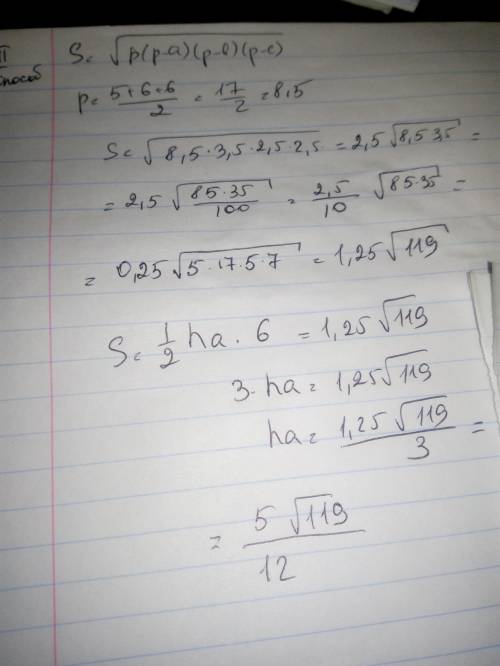 II способ
S = √p(p-a)(p-b)(p-c)
p = 5+6+6/2 = 17/2 = 8,5
S = √8,5·3,5·2,5·2,5 = 2,5√8,5·3,5 =
= 2,5 √85·35/100 = 2,5/10 √85·35 =
= 0,25√5·17·5·7 = 1,25√119
S = 1/2 ha · 6 = 1,25√119
3·ha = 1,25√119
ha = 1,25√119/3 =
= 5√119/12